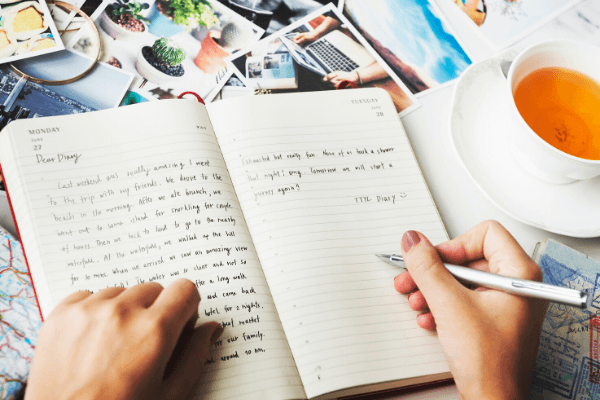 MONDAY
27
Dear Diary
Last weekend was really amazing. I went
to the trip with my friends. We drove to the
beach in the morning. After we ate brunch, we
went out to some island for snorkling for couple
of hours. Then we back to land to go to the nearby
waterfalls. At the waterfalls, we walked up the hill
for 30 mins. When we arrived we saw an amazing view
The water was so clear and not so
after a long walk
and came back
hotel for 2 nights.
market
for our family.
around 10 am.
TUESDAY
28
Exhausted but really fun. None of us took a shower
that night! omg.. Tomorrow we will start a
journey again?
TTYL Diary ☺